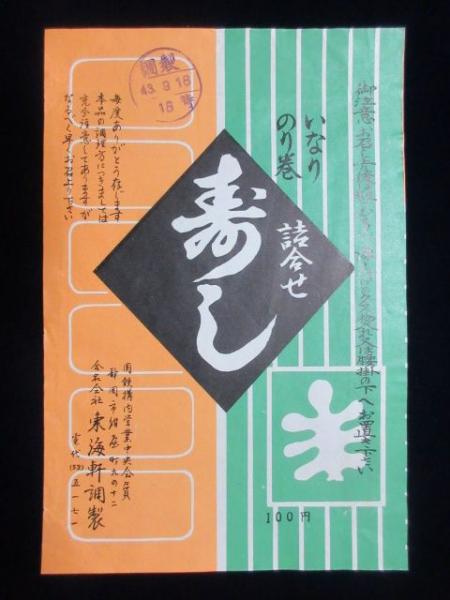 御注意 お召上り後は
くず物入れ又は腰掛の下へお置き下さい
いなり
のり巻
詰合せ
寿し
調製
43.9.18
18時
毎度ありがとう存じます
本品の調理方につきましては
完全注意してありますが
なるべく早くお召上り下さい
国鉄構内営業中央会会員
静岡市紺屋町
合名会社 東海軒調製
電代(53)五一七一
100円